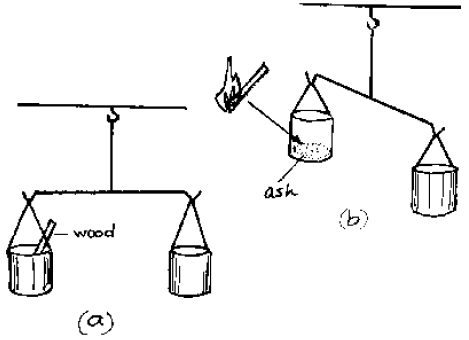 wood
(a)
ash
(b)